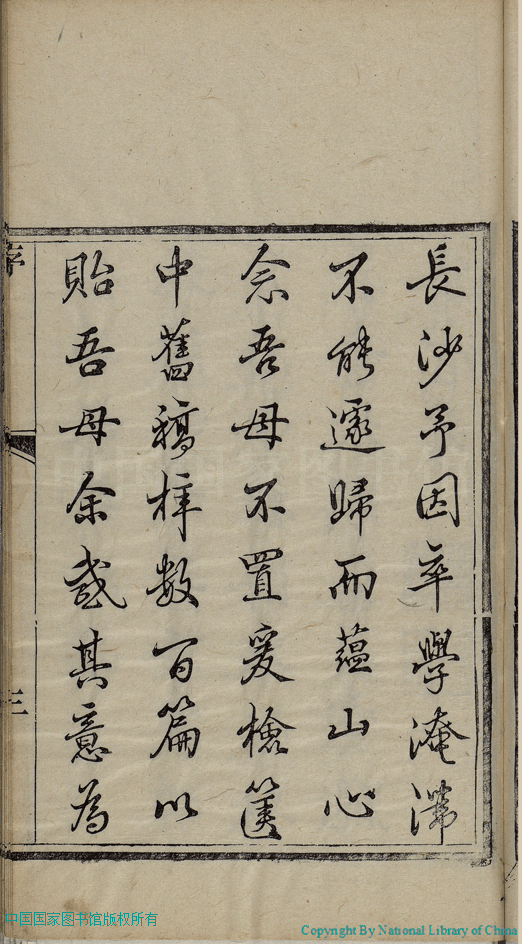 長沙予因卒學淹滯
不能遽歸而蘊山心
念吾母不置爰檢篋
中舊稿梓數百篇以
貽吾母余感其意為
序
三
中国国家图书馆版权所有
Copyright By National Library of China